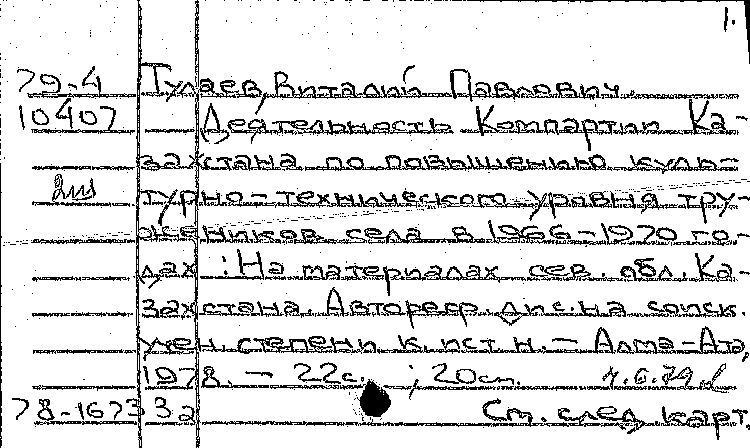 1.
79-4 Тулаев, Виталий Павлович.
10407 Деятельность Компартии Ка-
захстана по повышению куль-
турно-технического уровня тру-
жеников села в 1966-1970 го-
дах : На материалах сев. обл. Ка-
захстана. Автореф. дис. на соиск.
учен. степени к. ист. н. — Алма-Ата,
1978. — 22с. ; 20см.
78-16733а См. след. карт.